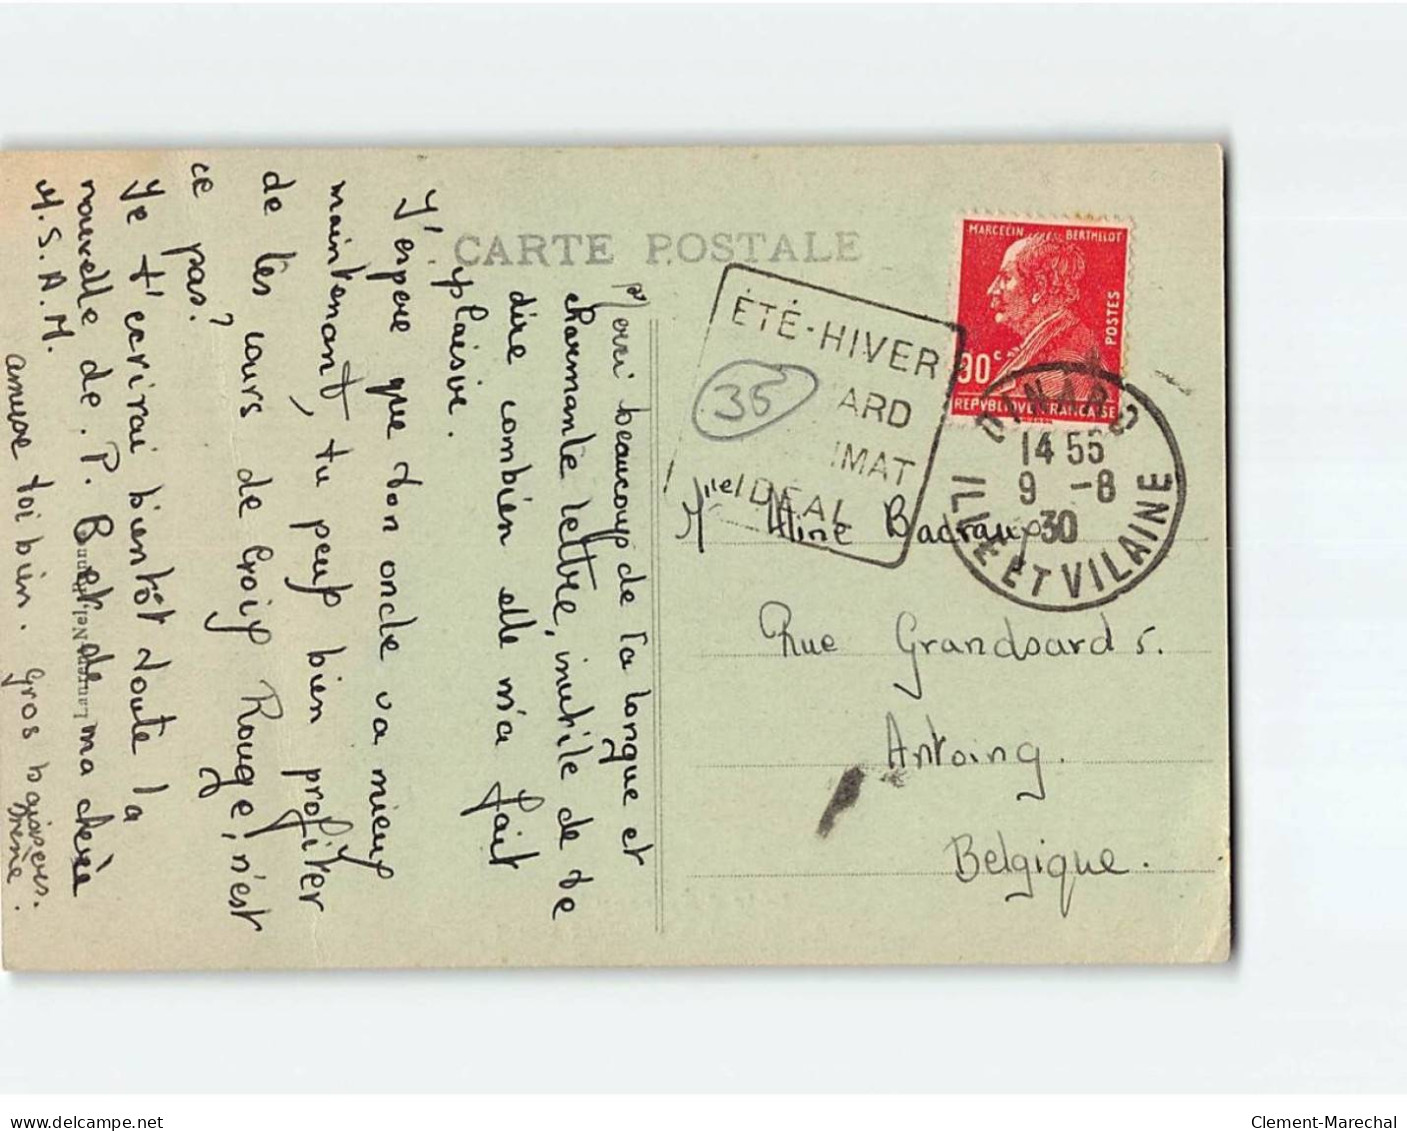 CARTE POSTALE
Merci beaucoup de ta longue et
charmante lettre, inutile de te
dire combien elle m'a fait
plaisir.
J'espère que ton oncle va mieux
maintenant, tu peux bien profiter
de tes cours de Croix Rouge, n'est
ce pas?
Je t'écrirai bientôt toute la
nouvelle de P. B et de ma chère
M. S. A. M.
amuse toi bien. Gros baisers.
Irène.
MARCELIN BERTHELOT
POSTES
90c
REPVBLIQVE FRANCAISE
ÉTÉ-HIVER
ARD
IMAT
IDEAL
36
DINARD
14 55
9 -8
30
ILLE ET VILAINE
Mlle Aline
Rue Grandsard 5.
Antoing.
Belgique.
delcampe.net
Clement-Marechal